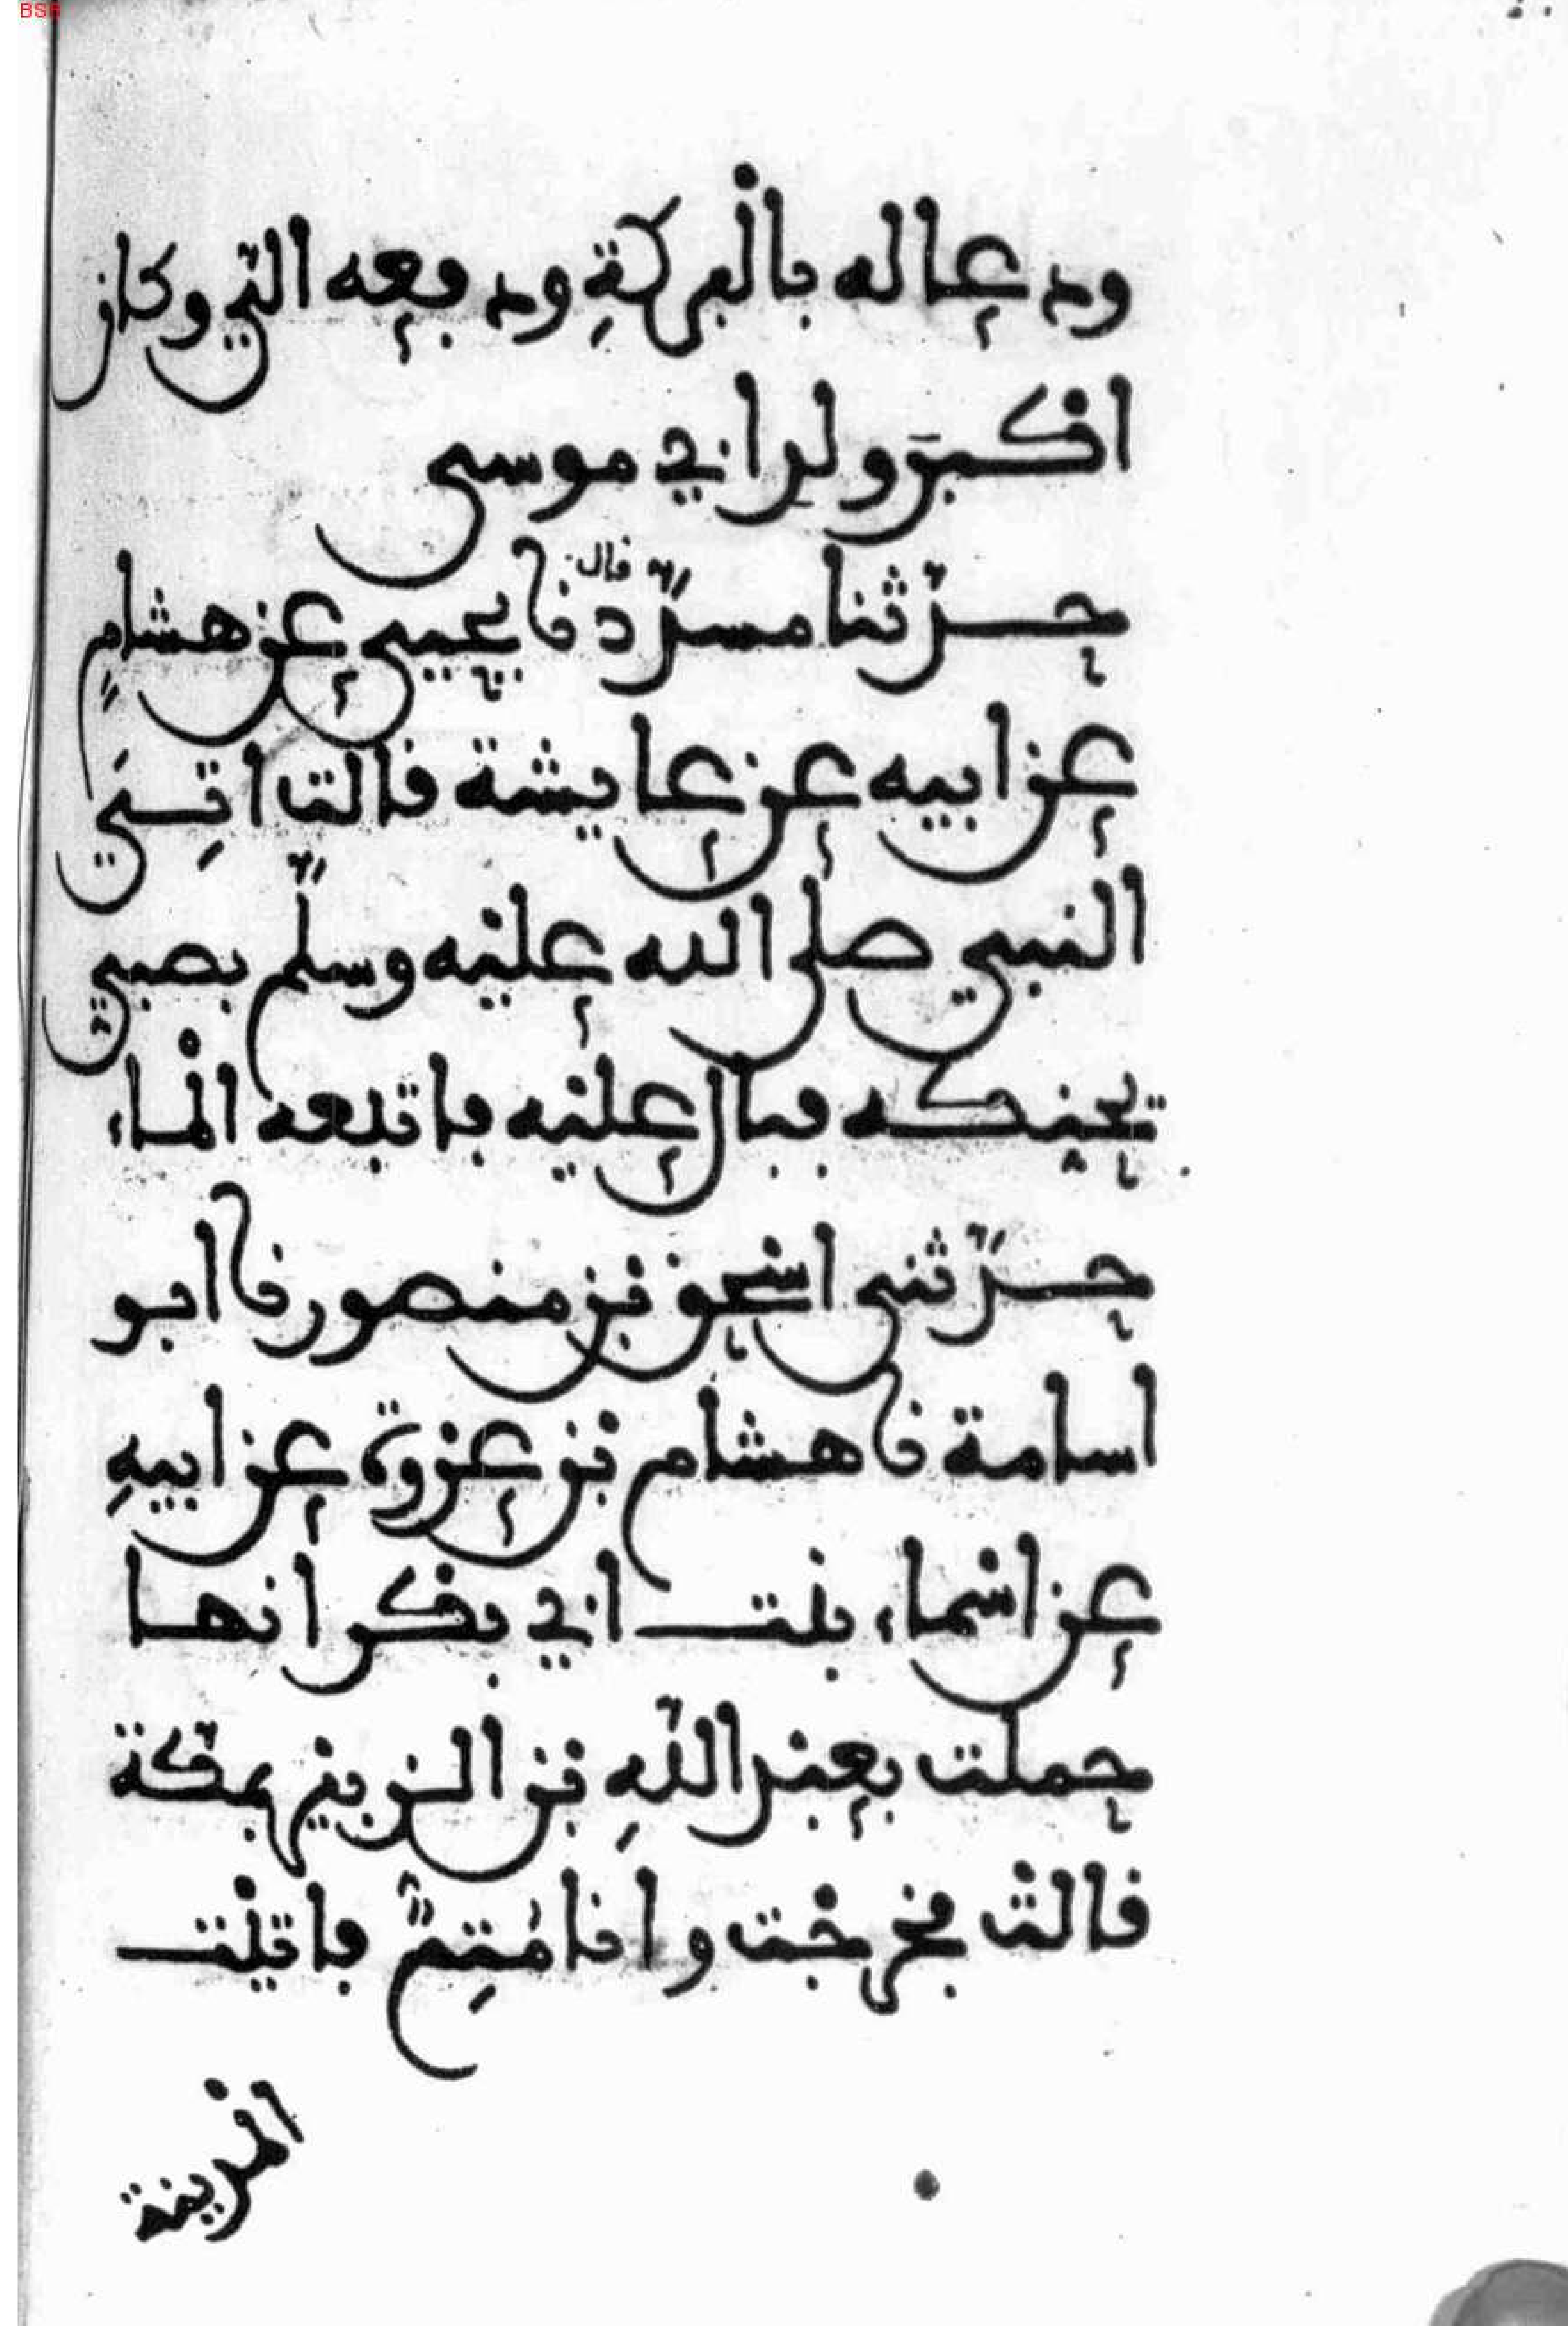 BSB
ودعا له بالبركةِ ودفعه اليّ وكان
اكبرَ ولد ابي موسى
حدّثنا مسدّد قال نا يحيى عن هشامٍ
عن ابيه عن عايشة قالت اتِيَ
النبي صلى الله عليْه وسلّم بصبيٍّ
يحنِكه فبال عليْه فاتبعه الْماء
حدّثني اسْحق بْن منصور نا ابو
اسامة نا هشام بْن عرْوة عن ابيهِ
عن اسْماء بنْت ابي بكْر انها
حملت بعبْد اللّهِ بْن الزبيْر بمكّة
قالتْ فخرجْت وانا مُتِمٌّ فاتيْت
الْمدينة